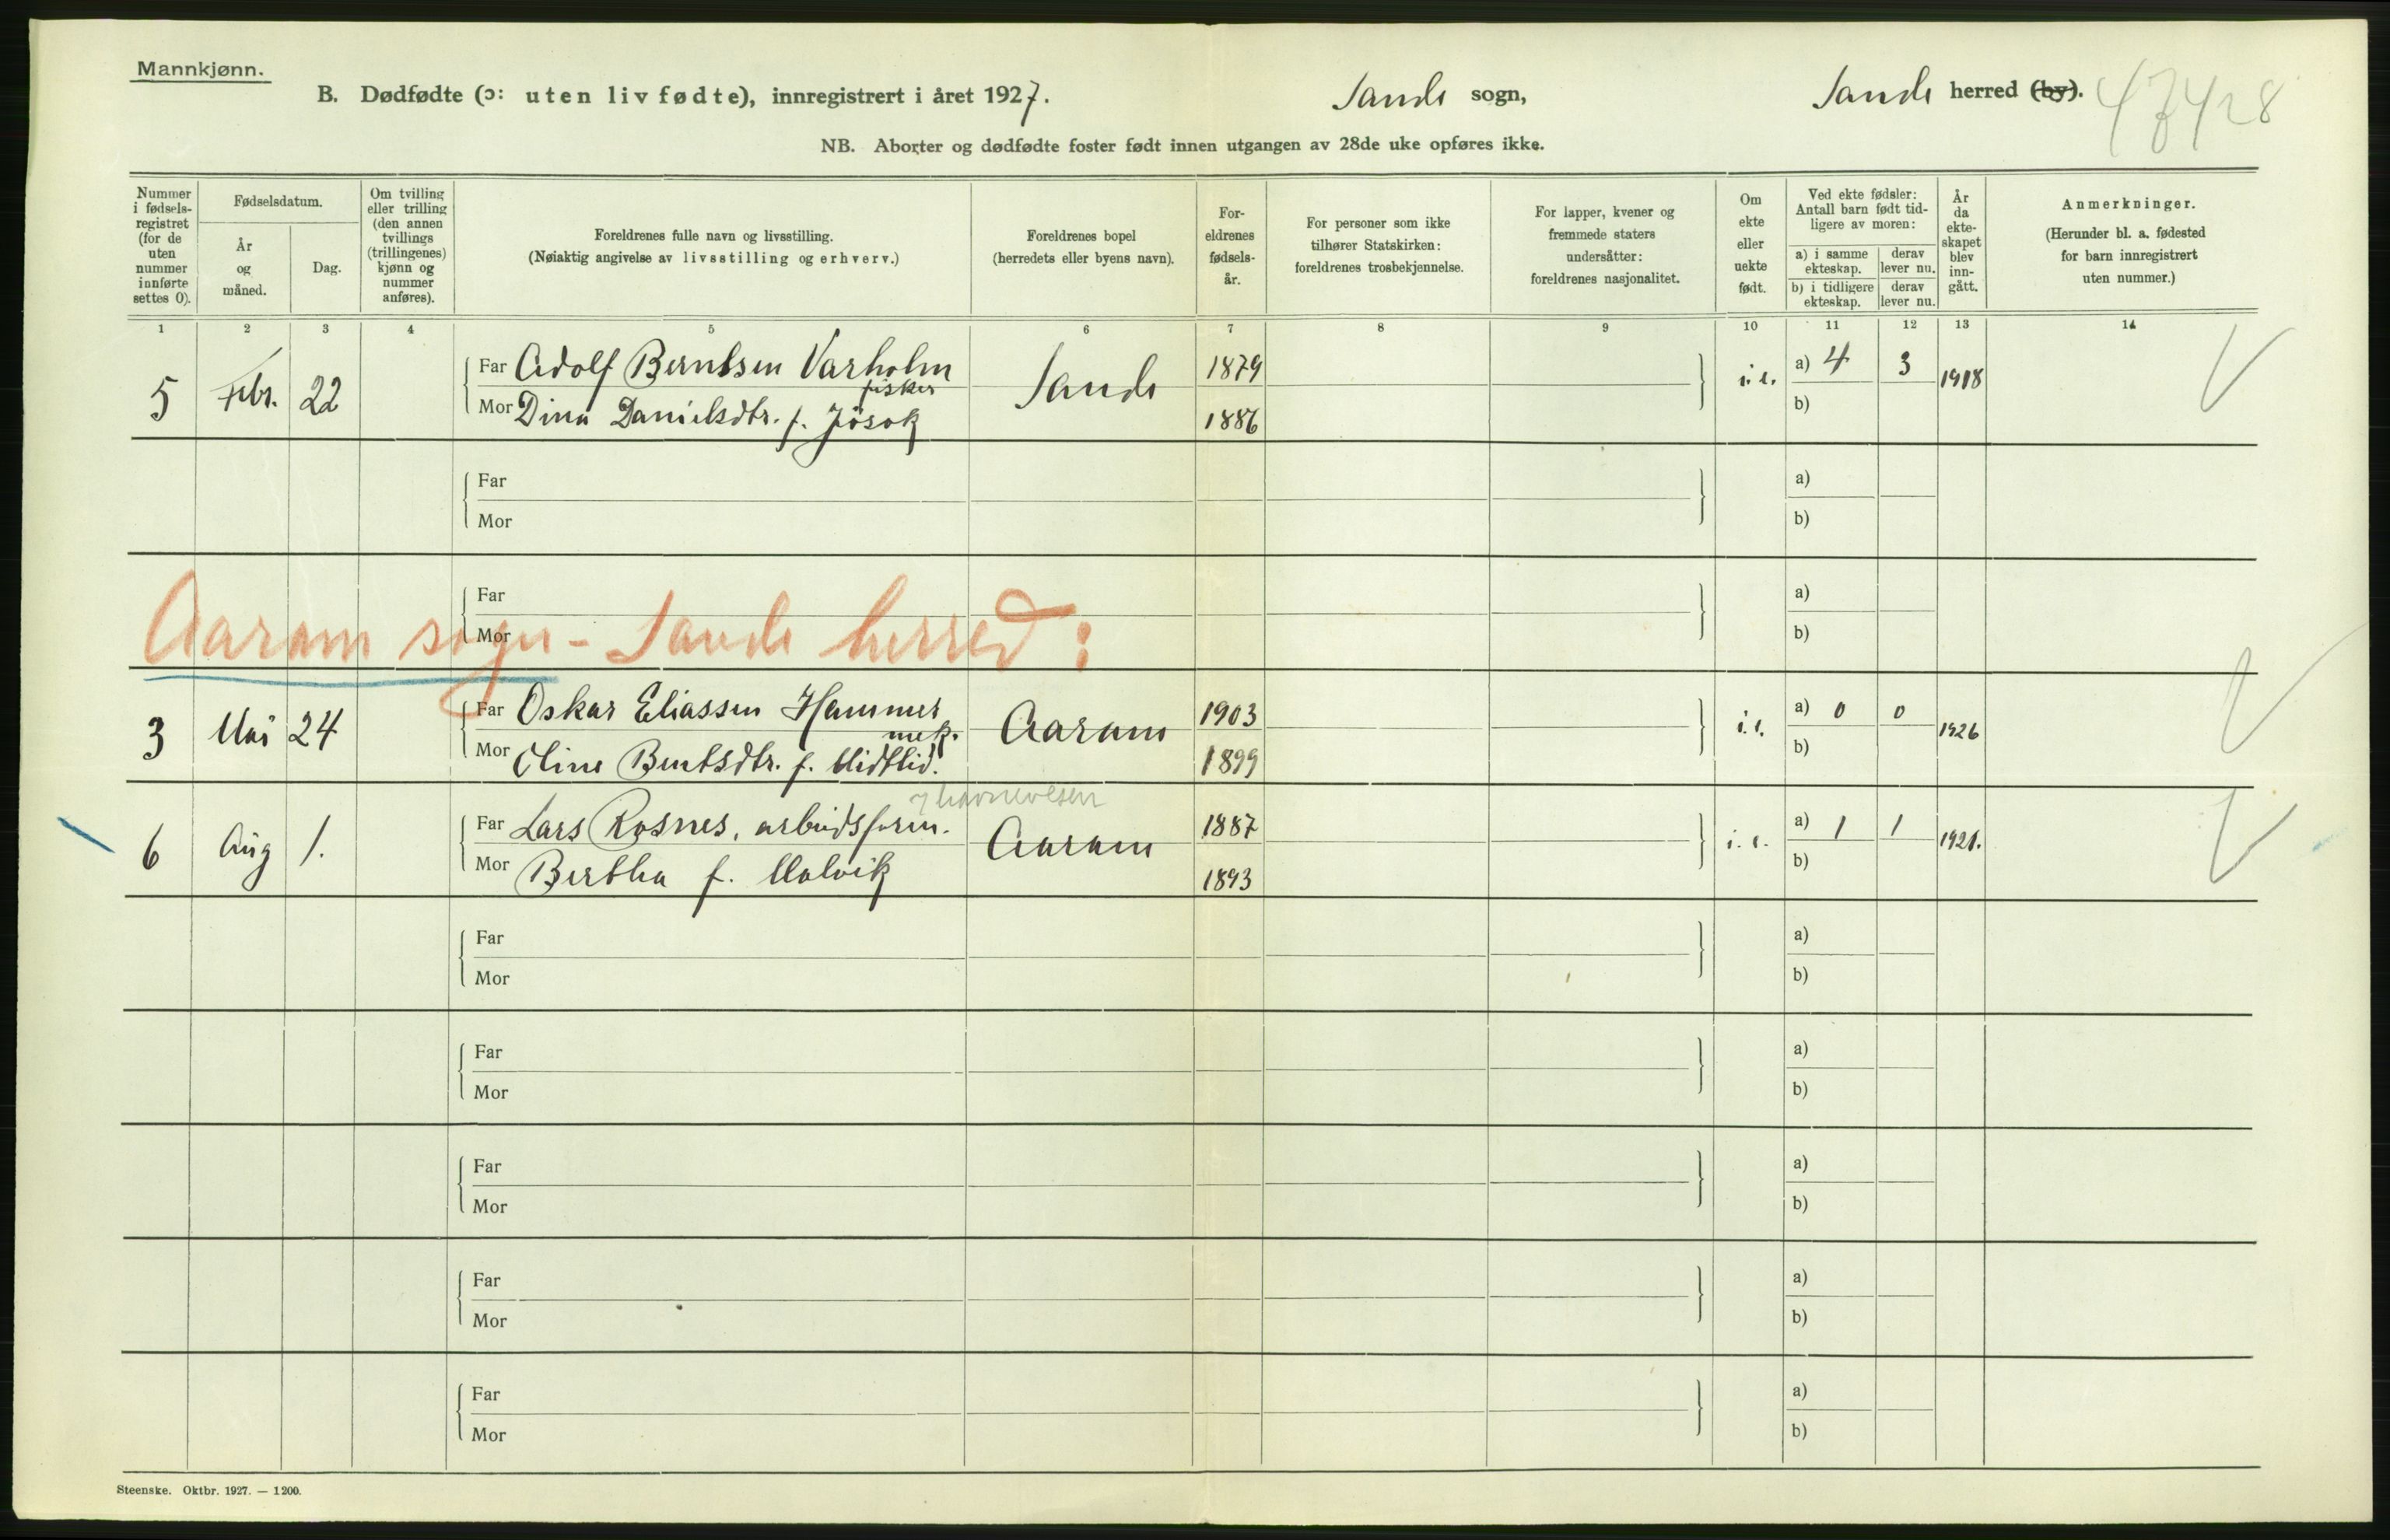 Mannkjønn.
B. Dødfødte (ɔ: uten liv fødte), innregistrert i året 1927. Sande sogn, Sande herred (by).
47428
NB. Aborter og dødfødte foster født innen utgangen av 28de uke opføres ikke.
Nummer i fødsels-registret (for de uten nummer innførte settes 0).
Fødselsdatum.
År og måned.
Dag.
Om tvilling eller trilling (den annen tvillings (trillingenes) kjønn og nummer anføres).
Foreldrenes fulle navn og livsstilling.
(Nøiaktig angivelse av livsstilling og erhverv.)
Foreldrenes bopel
(herredets eller byens navn).
For-eldrenes fødsels-år.
For personer som ikke tilhører Statskirken: foreldrenes trosbekjennelse.
For lapper, kvener og fremmede staters undersåtter: foreldrenes nasjonalitet.
Om ekte eller uekte født.
Ved ekte fødsler: Antall barn født tid-ligere av moren:
a) i samme ekteskap.
derav lever nu.
b) i tidligere ekteskap.
derav lever nu.
År da ekte-skapet blev inn-gått.
Anmerkninger.
(Herunder bl. a. fødested for barn innregistrert uten nummer.)
1 2 3 4 5 6 7 8 9 10 11 12 13 14
5 Febr. 22 Far Adolf Berntsen Varholm fisker Sande 1879 i. e. a) 4 3 1918
Mor Dina Danielsdtr. f. Jøsok 1886 b)
Far a)
Mor b)
Far a)
Mor b)
Aaram sogn - Sande herred:
3 Mai 24 Far Oskar Eliassen Hammer mek. Aaram 1903 i. e. a) 0 0 1926
Mor Oline Berntsdtr. f. Midtlid. 1899 b)
havnevesen
6 Aug 1. Far Lars Rosnes, arbeidsform. Aaram 1887 i. e. a) 1 1 1921.
Mor Bertha f. Molvik 1893 b)
Far a)
Mor b)
Far a)
Mor b)
Far a)
Mor b)
Far a)
Mor b)
Far a)
Mor b)
Steenske. Oktbr. 1927. — 1200.